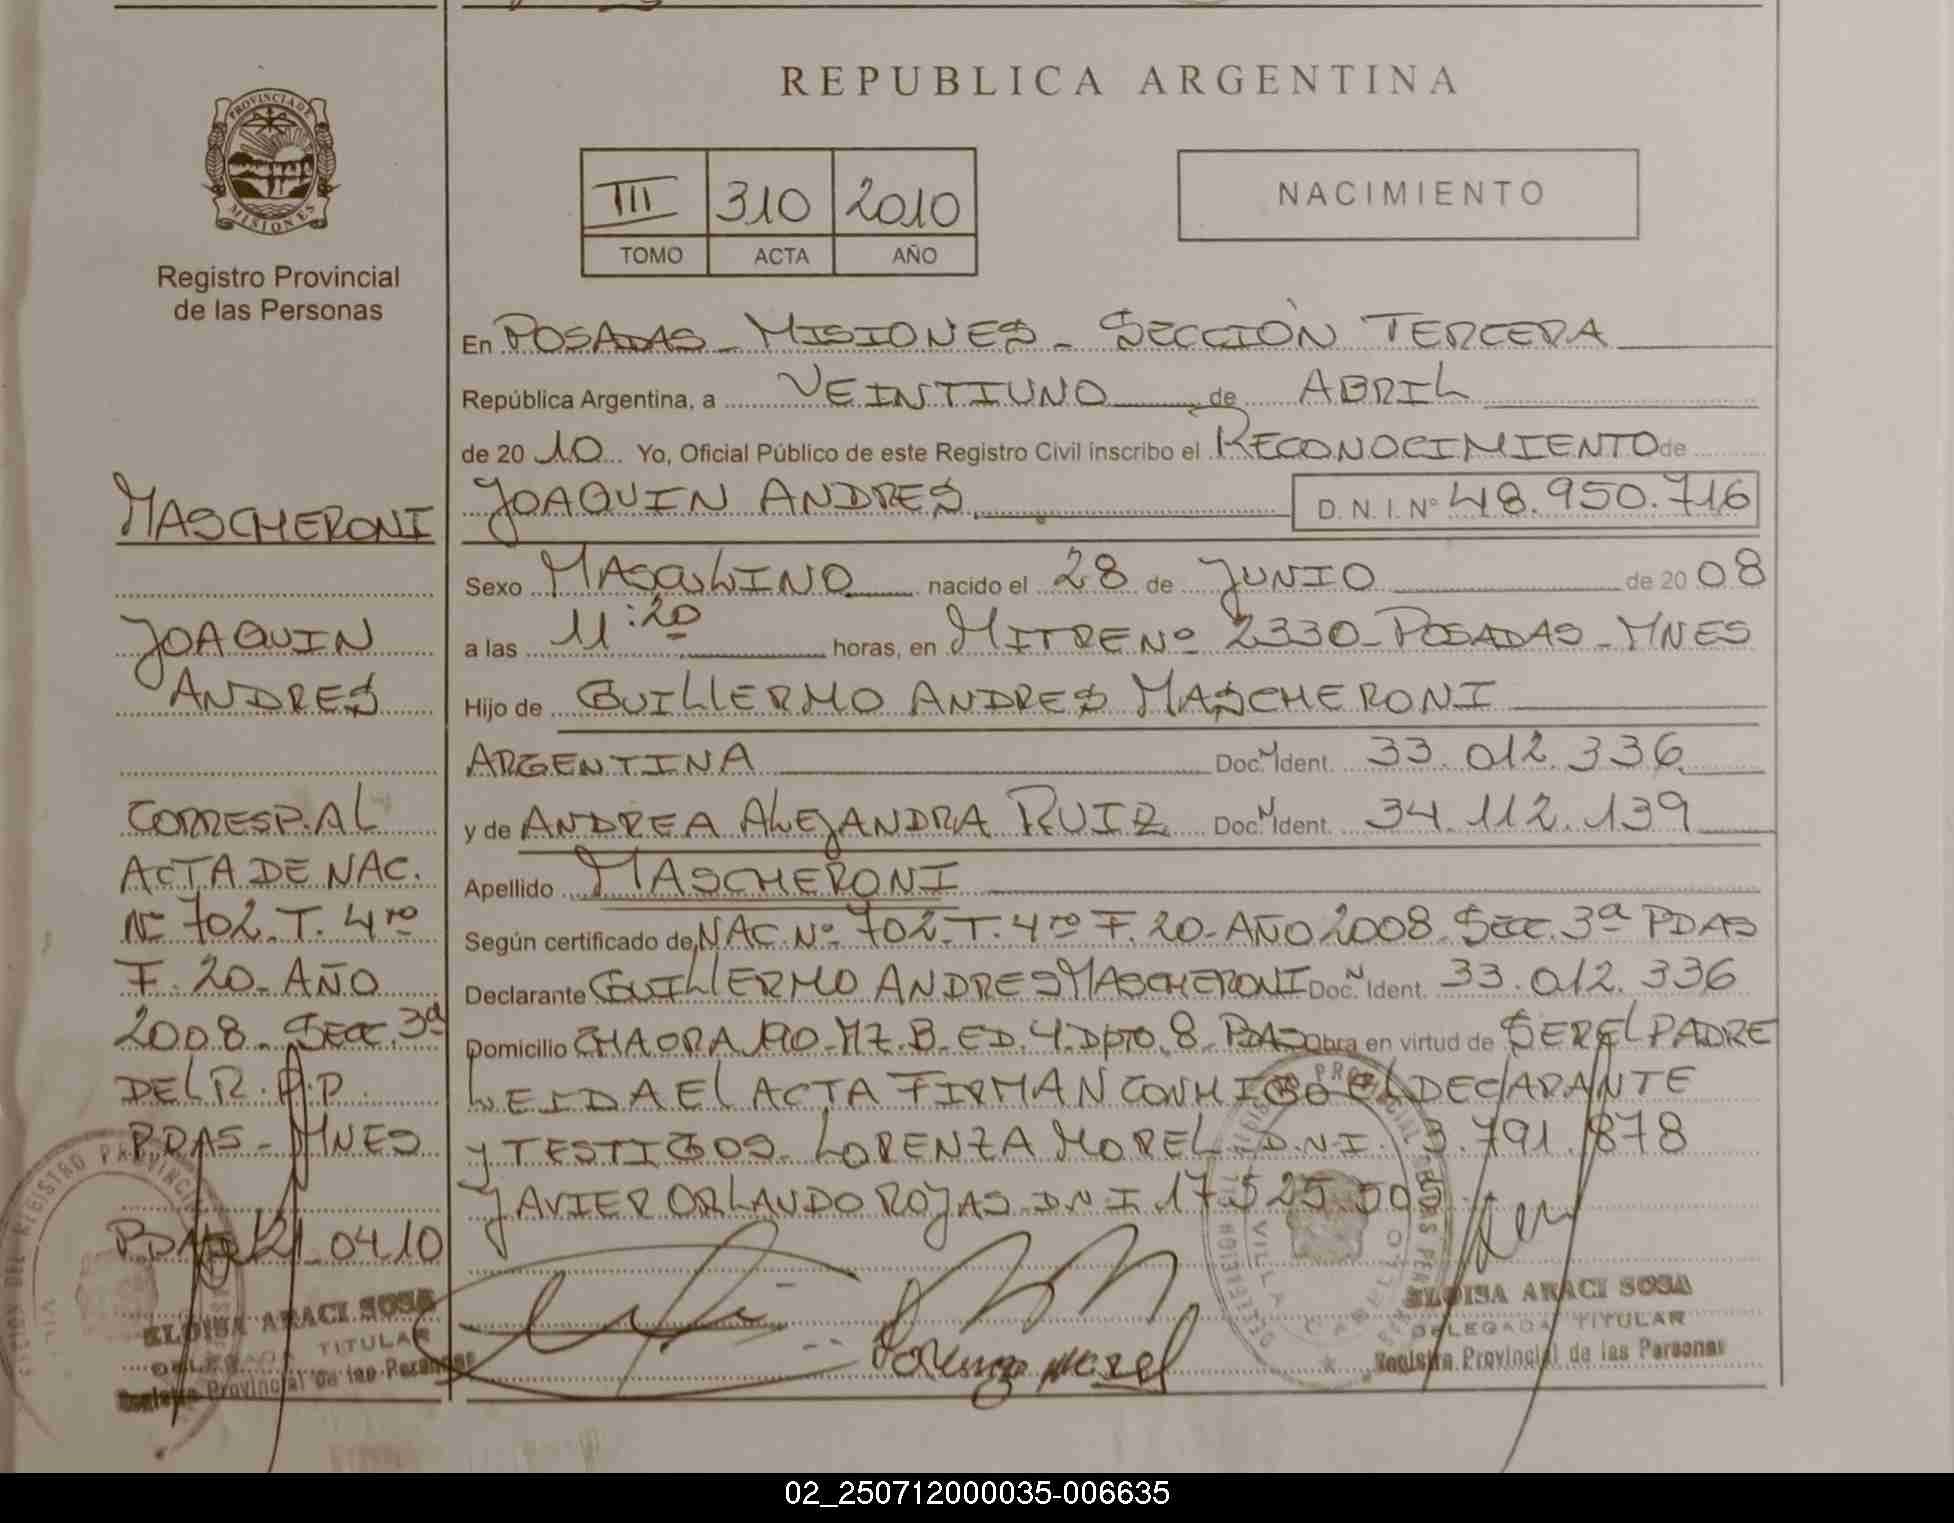 REPUBLICA ARGENTINA
PROVINCIA DE
MISIONES
Registro Provincial
de las Personas
III 310 2010
TOMO ACTA AÑO
NACIMIENTO
En POSADAS - MISIONES - SECCIÓN TERCERA
República Argentina, a VEINTIUNO de ABRIL
de 20 10 Yo, Oficial Público de este Registro Civil inscribo el RECONOCIMIENTO de
JOAQUIN ANDRES D. N. I. Nº 48.950.716
Sexo MASCULINO nacido el 28 de JUNIO de 20 08
a las 11:20 horas, en MITRE Nº 2330 - POSADAS - MNES
Hijo de GUILLERMO ANDRES MASCHERONI
ARGENTINA Doc. Ident. 33.012.336
y de ANDREA ALEJANDRA RUIZ Doc. Ident. 34.112.139
Apellido MASCHERONI
Según certificado de NAC. Nº 702. T. 4ro F. 20 - AÑO 2008. SECC. 3ª PDAS
Declarante GUILLERMO ANDRES MASCHERONI Doc. Ident. 33.012.336
Domicilio CHACRA 190 - MZ. B. ED. 4. Dpto. 8 - PDAS Obra en virtud de SER EL PADRE
LEIDA EL ACTA FIRMAN CONMIGO EL DECLARANTE
y TESTIGOS - LORENZA MOREL D.N.I. 3.791.878
JAVIER ORLANDO ROJAS D.N.I. 17.525.505
Lorenza Morel
ELOISA ARACI SOSA
DELEGADA TITULAR
Registro Provincial de las Personas
MASCHERONI
JOAQUIN
ANDRES
CORRESP. AL
ACTA DE NAC.
Nº 702. T. 4ro
F. 20 - AÑO
2008 - SECC. 3ª
DEL R.P.P.
PDAS - MNES
PDAS 21-04.10
ELOISA ARACI SOSA
DELEGADA TITULAR
Registro Provincial de las Personas
02_250712000035-006635